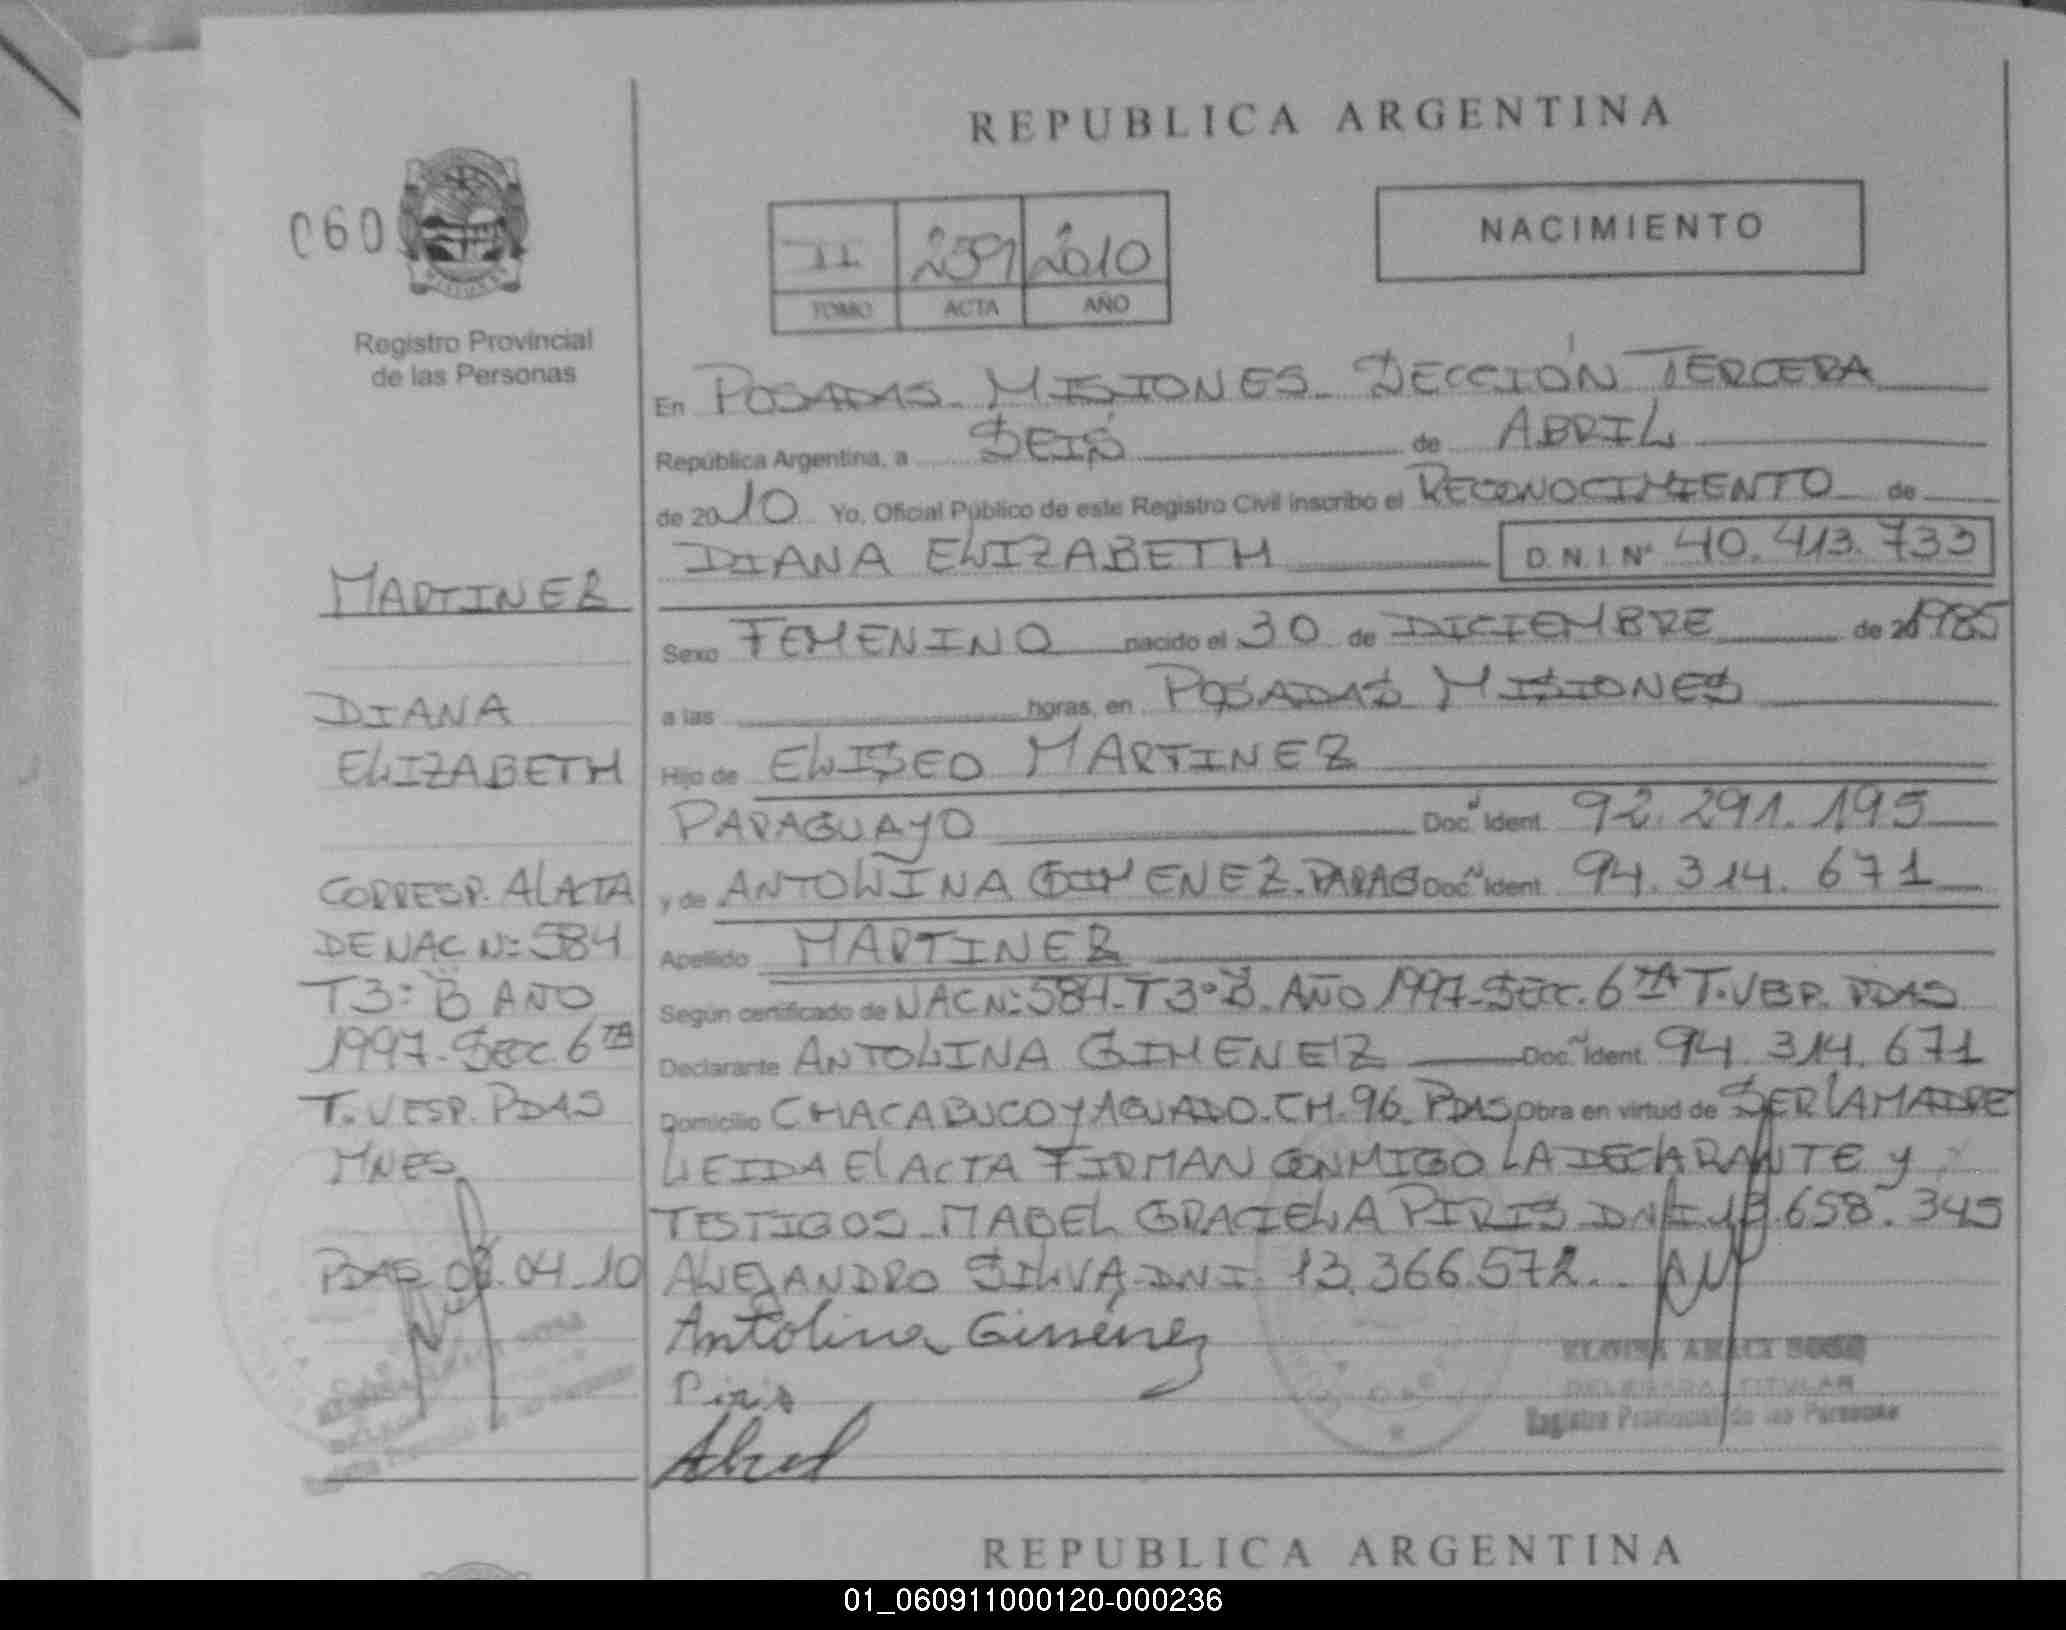 REPUBLICA ARGENTINA
060
NACIMIENTO
II 2591 2010
TOMO ACTA AÑO
Registro Provincial
de las Personas
En POSADAS MISIONES SECCIÓN TERCERA
República Argentina, a SEIS de ABRIL
de 2010 Yo, Oficial Público de este Registro Civil inscribo el RECONOCIMIENTO de
DIANA ELIZABETH D.N.I. Nº 40.413.733
Sexo FEMENINO nacido el 30 de DICIEMBRE de 1985
a las horas, en POSADAS MISIONES
Hijo de ELISEO MARTINEZ
PARAGUAYO Doc. Ident. 92.291.195
y de ANTOLINA GIMENEZ. PARAG Doc. Ident. 94.314.671
Apellido MARTINEZ
Según certificado de NAC Nº 584-T3º B. AÑO 1997-SECC. 6TA T. VESP. PDAS
Declarante ANTOLINA GIMENEZ Doc. Ident. 94.314.671
Domicilio CHACABUCO Y AGUADO. CH. 96. PDAS Obra en virtud de SER LA MADRE
LEIDA EL ACTA FIRMAN CONMIGO LA DECLARANTE Y
TESTIGOS MABEL GRACIELA PIRIS DNI .658.345
ALEJANDRO SILVA DNI 13.366.572
Antolina Gimenez
Piris
MARTINEZ
DIANA
ELIZABETH
CORRESP. AL ACTA
DE NAC Nº 584
T3º B AÑO
1997-SECC. 6TA
T. VESP. PDAS
MNES
PDAS .04.10
SOSA
DELEGADA TITULAR
Registro Provincial de las Personas
REPUBLICA ARGENTINA
01_060911000120-000236